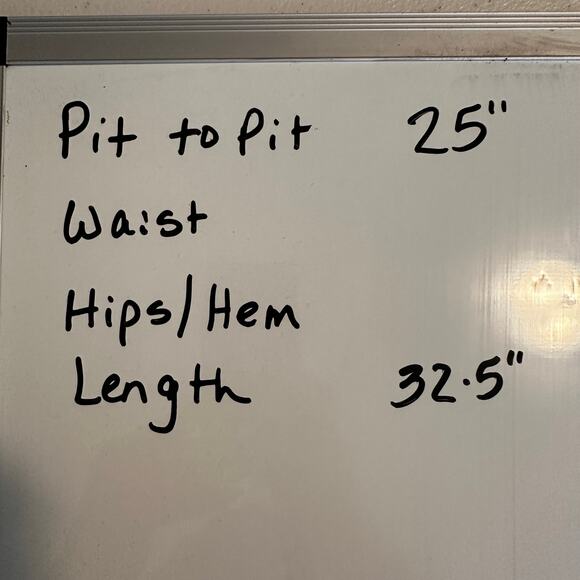 Pit to Pit 25"
Waist
Hips/Hem
Length 32.5"